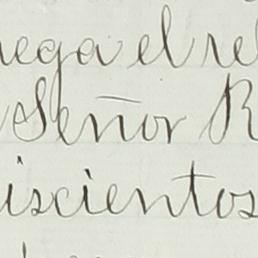 ega el re
Señor R
iscientos